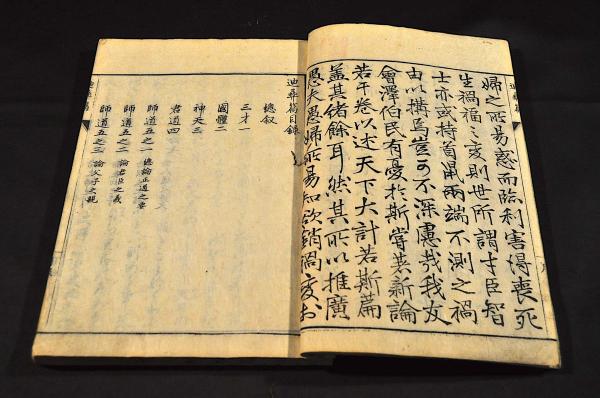 婦之所易惑而臨利害得喪死
生禍福之變則世所謂才臣智
士亦或持首鼠兩端不測之禍
由以搆焉豈可不深慮哉我友
會澤伯民有憂於斯嘗著新論
若干卷以述天下大計若斯篇
蓋其緒餘耳然其所以推廣
愚夫愚婦所易知欲銷禍變於
迪彝篇目錄
總叙
三才一
國體二
神天三
君道四
師道五之一 總論正道之事
師道五之二 論君臣之義
師道五之三 論父子之親